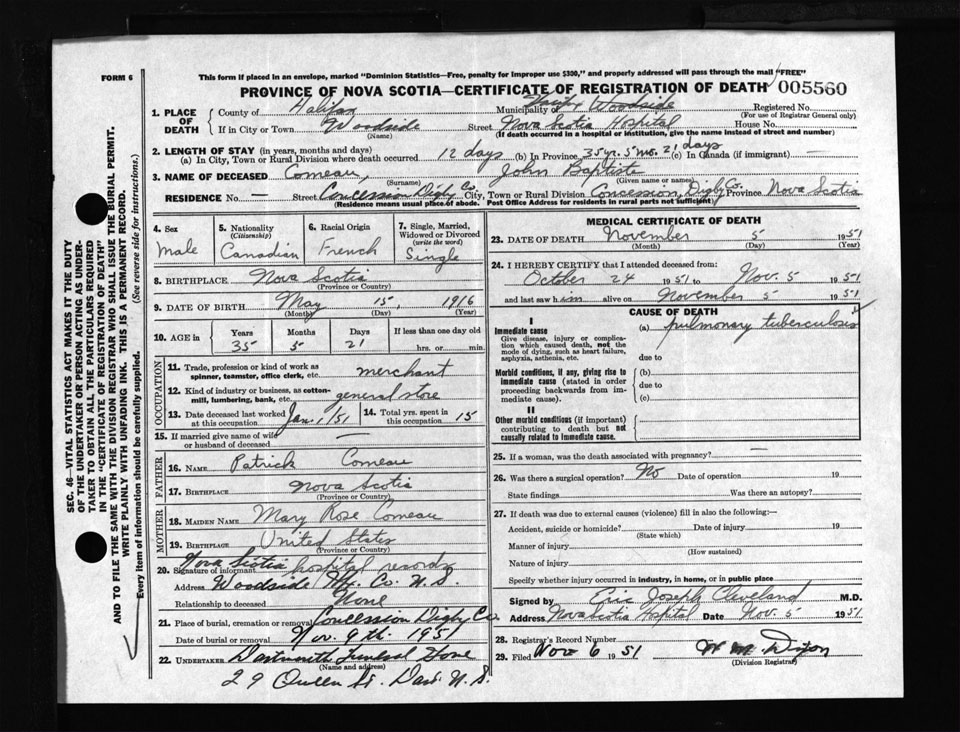 FORM 6
This form if placed in an envelope, marked "Dominion Statistics—Free, penalty for improper use $300," and properly addressed will pass through the mail "FREE"
PROVINCE OF NOVA SCOTIA—CERTIFICATE OF REGISTRATION OF DEATH 005560
1. PLACE OF DEATH
County of Halifax Municipality of Woodside Registered No.
(For use of Registrar General only)
If in City or Town Woodside Street Nova Scotia Hospital House No.
(Name) (If death occurred in a hospital or institution, give the name instead of street and number)
2. LENGTH OF STAY (in years, months and days)
(a) In City, Town or Rural Division where death occurred 12 days (b) In Province 35 yr. 5 mo. 21 days (c) In Canada (if immigrant) —
3. NAME OF DECEASED Comeau, John Baptiste
(Surname) (Given name or names)
RESIDENCE No. — Street Concession Digby Co. City, Town or Rural Division Concession, Digby Co. Province Nova Scotia
(Residence means usual place of abode. Post Office Address for residents in rural parts not sufficient)
4. Sex Male
5. Nationality (Citizenship) Canadian
6. Racial Origin French
7. Single, Married, Widowed or Divorced (write the word) Single
8. BIRTHPLACE Nova Scotia
(Province or Country)
9. DATE OF BIRTH May 15, 1916
(Month) (Day) (Year)
10. AGE in Years 35 Months 5 Days 21 If less than one day old hrs. or min.
OCCUPATION
11. Trade, profession or kind of work as spinner, teamster, office clerk, etc. merchant
12. Kind of industry or business, as cotton-mill, lumbering, bank, etc. general store
13. Date deceased last worked at this occupation Jan. 1/51
14. Total yrs. spent in this occupation 15
15. If married give name of wife or husband of deceased —
FATHER
16. NAME Patrick Comeau
17. BIRTHPLACE Nova Scotia
(Province or Country)
MOTHER
18. MAIDEN NAME Mary Rose Comeau
19. BIRTHPLACE United States
(Province or Country)
20. Signature of informant Nova Scotia hospital records
Address Woodside Hx. Co. N.S.
Relationship to deceased None
21. Place of burial, cremation or removal Concession Digby Co.
Date of burial or removal Nov. 9th. 1951
22. UNDERTAKER Dartmouth Funeral Home
(Name and address)
29 Queen St. Dart. N.S.
MEDICAL CERTIFICATE OF DEATH
23. DATE OF DEATH November 5 1951
(Month) (Day) (Year)
24. I HEREBY CERTIFY that I attended deceased from:
October 24 1951 to Nov. 5 1951
and last saw him alive on November 5 1951
CAUSE OF DEATH
I
Immediate cause
Give disease, injury or complication which caused death, not the mode of dying, such as heart failure, asphyxia, asthenia, etc.
(a) pulmonary tuberculosis
due to
Morbid conditions, if any, giving rise to immediate cause (stated in order proceeding backwards from immediate cause).
(b)
due to
(c)
II
Other morbid conditions (if important) contributing to death but not causally related to immediate cause.
25. If a woman, was the death associated with pregnancy? —
26. Was there a surgical operation? No Date of operation 19
State findings Was there an autopsy?
27. If death was due to external causes (violence) fill in also the following:—
Accident, suicide or homicide? Date of injury 19
(State which)
Manner of injury
(How sustained)
Nature of injury
Specify whether injury occurred in industry, in home, or in public place
Signed by Eric Joseph Cleveland M.D.
Address Nova Scotia Hospital Date Nov. 5 1951
28. Registrar's Record Number
29. Filed Nov 6 1951 W M Dixon
(Division Registrar)
SEC. 46—VITAL STATISTICS ACT MAKES IT THE DUTY
OF THE UNDERTAKER OR PERSON ACTING AS UNDER-
TAKER TO OBTAIN ALL THE PARTICULARS REQUIRED
IN THE "CERTIFICATE OF REGISTRATION OF DEATH"
AND TO FILE THE SAME WITH THE DIVISION REGISTRAR WHO SHALL ISSUE THE BURIAL PERMIT.
WRITE PLAINLY WITH UNFADING INK. THIS IS A PERMANENT RECORD.
Every item of information should be carefully supplied. (See reverse side for instructions.)